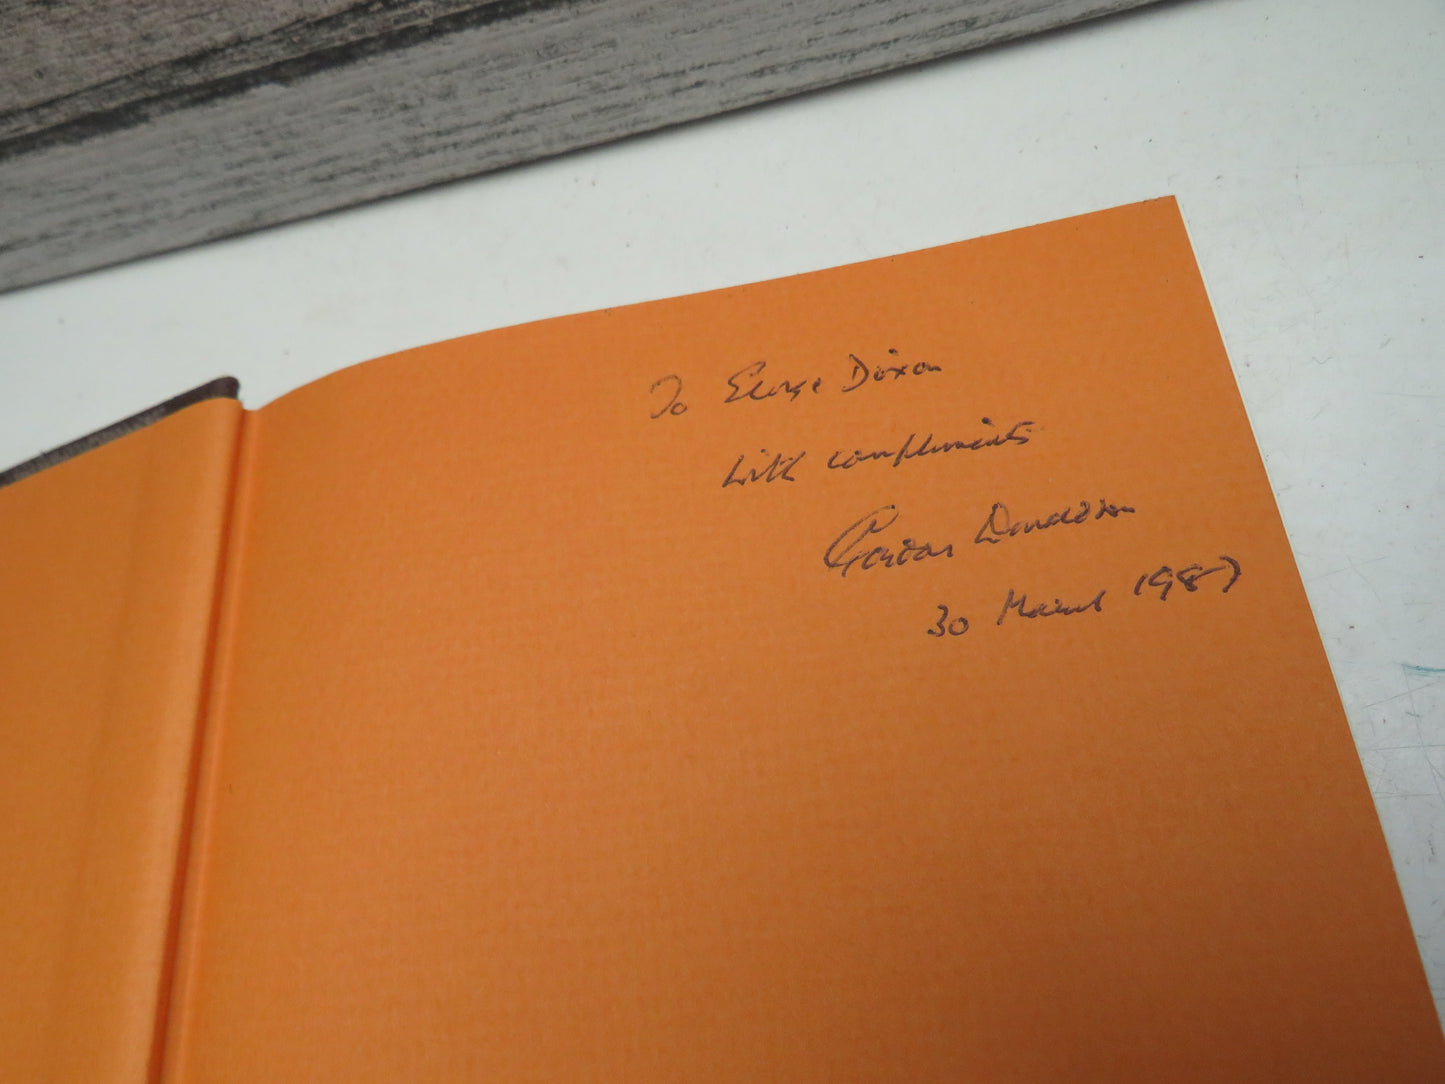 To George Dixon
with compliments
Gordon Donaldson
30 March 1987